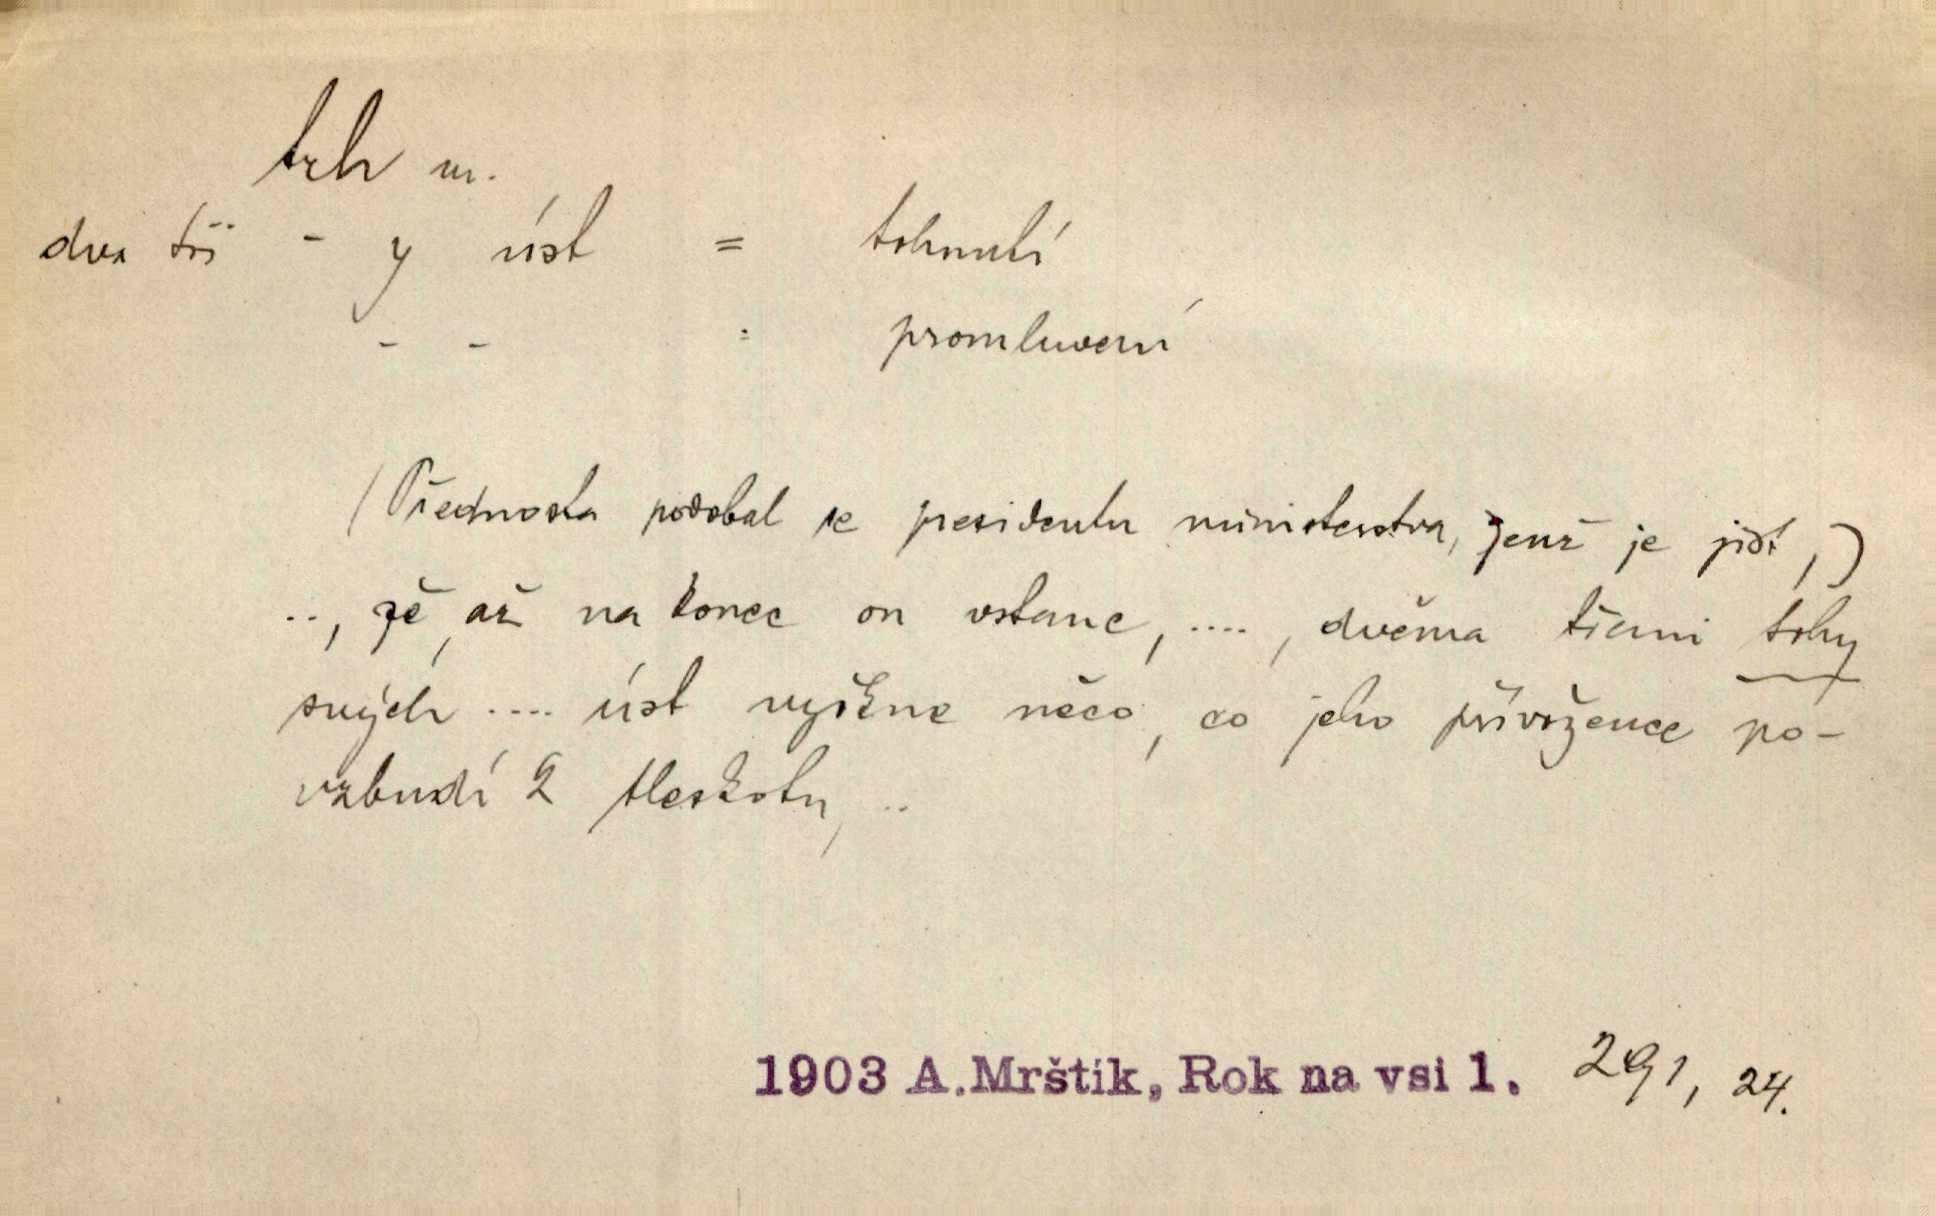 trh m.
dva tři - y úst = trhnutí
- - = promluvení
(Přednosta podobal se presidentu ministerstva, jenž je jist,)
.., že, až na konec on vstane, ...., dvěma třemi trhy
svých .... úst vyřkne něco, co jeho přívržence po-
vzbudí k tleskotu, ..
1903 A.Mrštík, Rok na vsi 1. 291, 24.